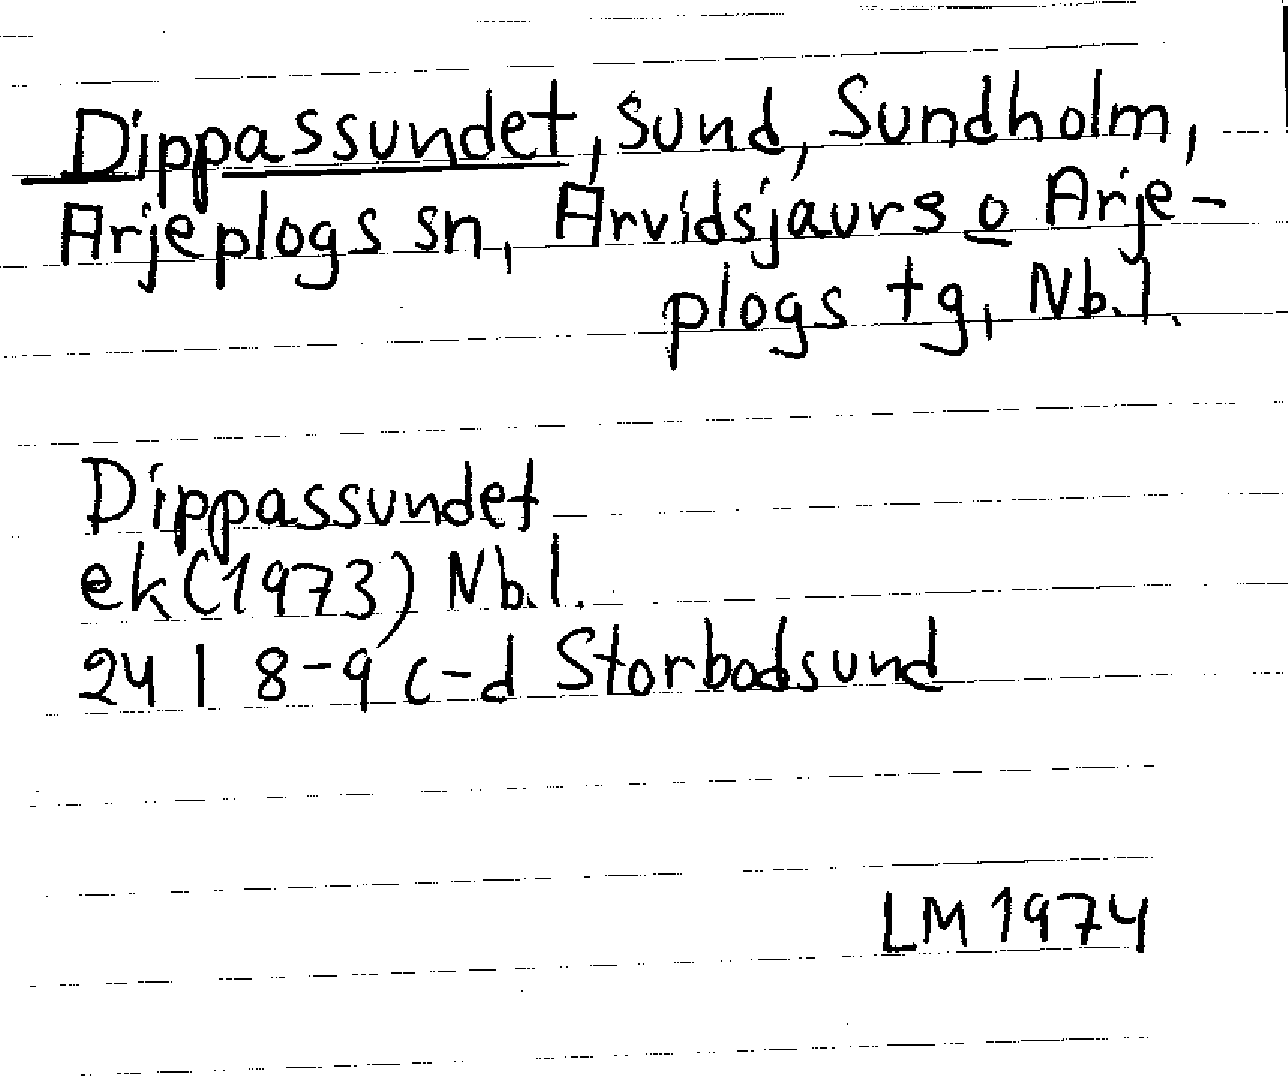 Dippassundet, sund, Sundholm,
Arjeplogs sn, Arvidsjaurs o Arje-
plogs tg, Nb.l.
Dippassundet
ek (1973) Nb.l.
24 I 8-9 c-d Storbodsund
LM 1974